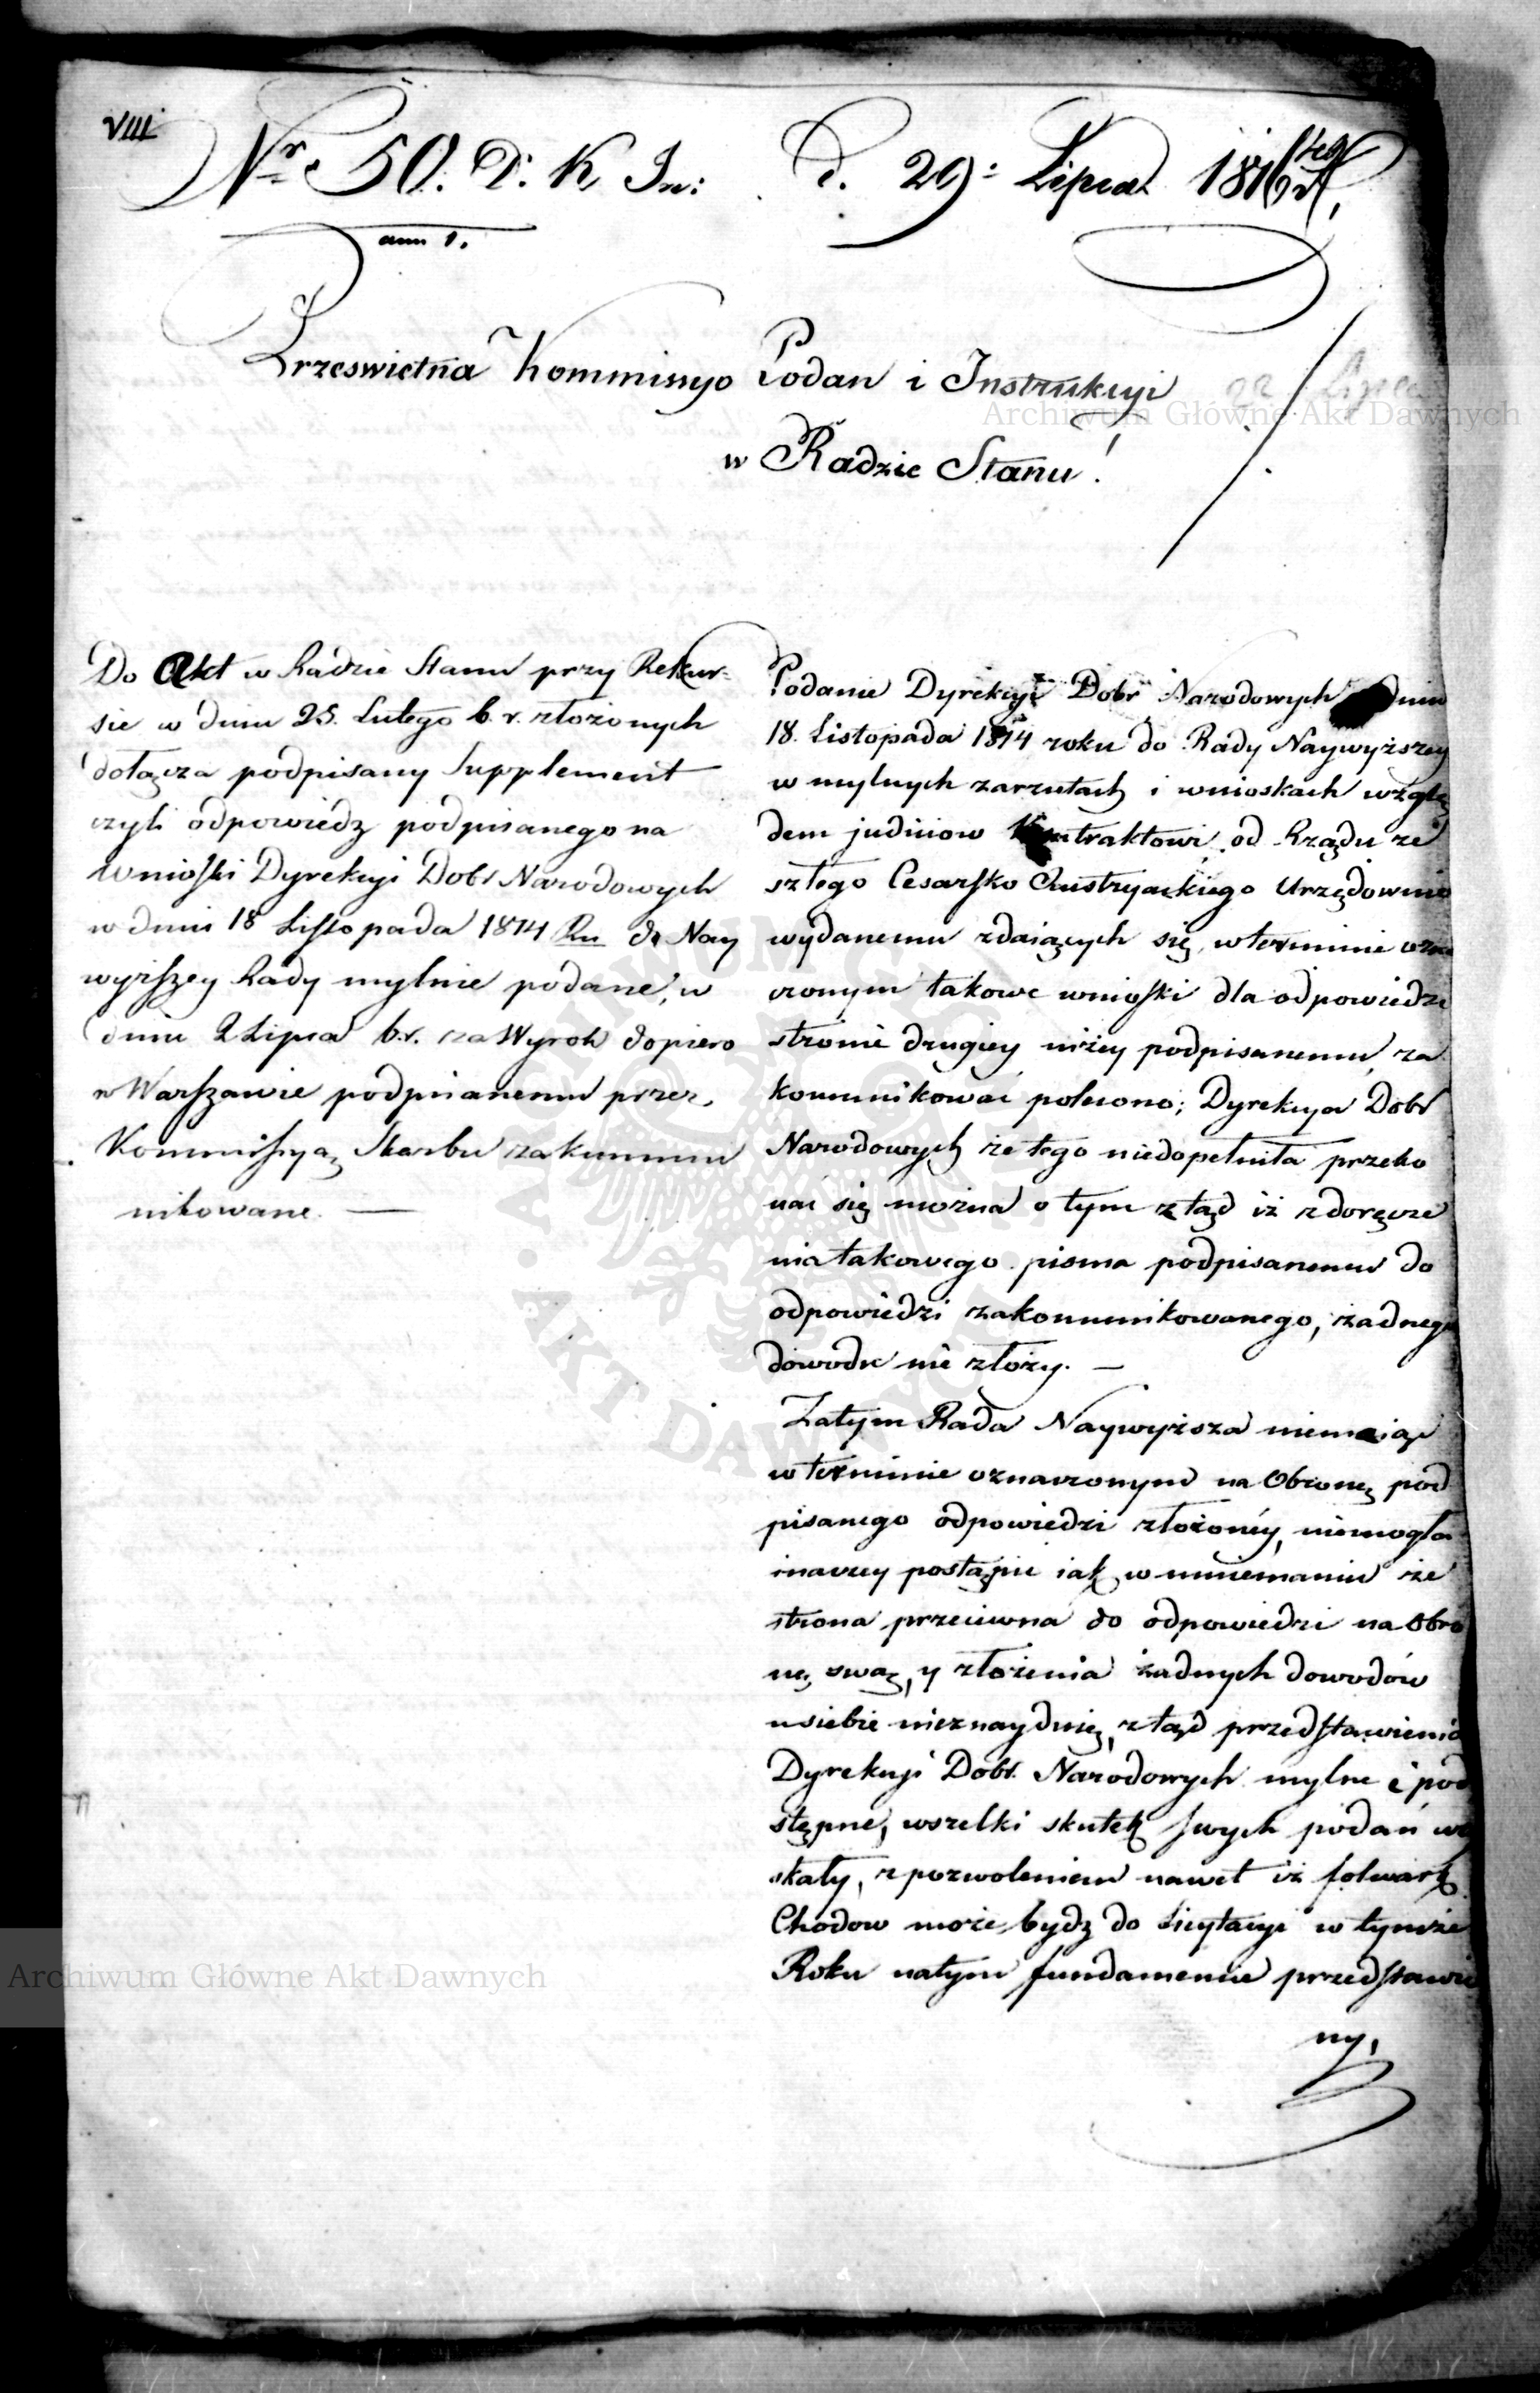 VIII
Nr 50. D. K. In: d. 29: Lipca 1816
ann 1.
Przeswietna Kommissyo Podan i Instrukcyi
22 Lipca
w Radzie Stanu!
Do Akt w Radzie Stanu przy Rekur-
sie w dniu 25. Lutego b. r. złożonych
dołącza podpisany Supplement
czyli odpowiedz podpisanego na
wnioski Dyrekcyi Dobr Narodowych
w dniu 18 Listopada 1814 Ru do Nay
wyższey Rady mylnie podane, w
dniu 2 Lipca b. r. za Wyrok dopiero
w Warszawie podpisanemu przez
Kommissyą Skarbu zakommu
nikowane. —
Podanie Dyrekcyi Dobr Narodowych dniu
18. Listopada 1814 roku do Rady Naywyższey
w mylnych zarzutach i wnioskach wzglę
dem judiciow Kontraktowi od Rządu ze
szłego Cesarsko Austryackiego Urzędownie
wydanemu zdaiących się, w terminie ozna
czonym takowe wnioski dla odpowiedzi
stronie drugiey niżey podpisanemu za
kommunikować polecono; Dyrekcya Dobr
Narodowych że tego niedopełniła przeko
nać się można o tym ztąd iż zdoręcze
nia takowego pisma podpisanemu do
odpowiedzi zakommunikowanego, żadnego
dowodu nie złoży. —
Zatym Rada Naywyższa niemaiąc
w terminie oznaczonym na Obronę pod
pisanego odpowiedzi złożoney, niemogła
inaczey postąpić iak w mniemaniu że
strona przeciwna do odpowiedzi na Obro
nę swą, y złożenia żadnych dowodów
u siebie nieznayduię, ztąd przedstawienia
Dyrekcyi Dobr Narodowych mylne i pod
stępne, wszelki skutek swych podań uzy
skały, z pozwoleniem nawet iż folwark
Chodow może bydz do Licytacyi w tymże
Roku natym fundamencie przedstawio
ny,
Archiwum Główne Akt Dawnych
Archiwum Główne Akt Dawnych